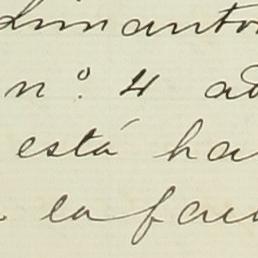 Limanto
nº. 4 ad
está ha
la fau